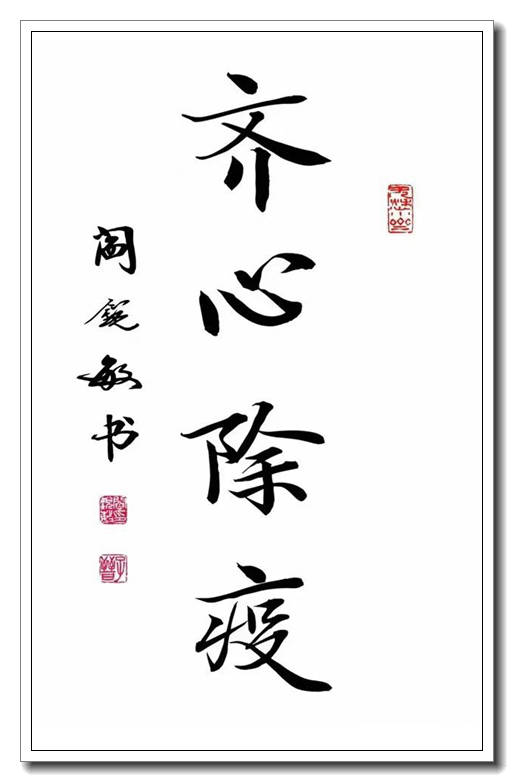 齐心除疫
阎锐敏书